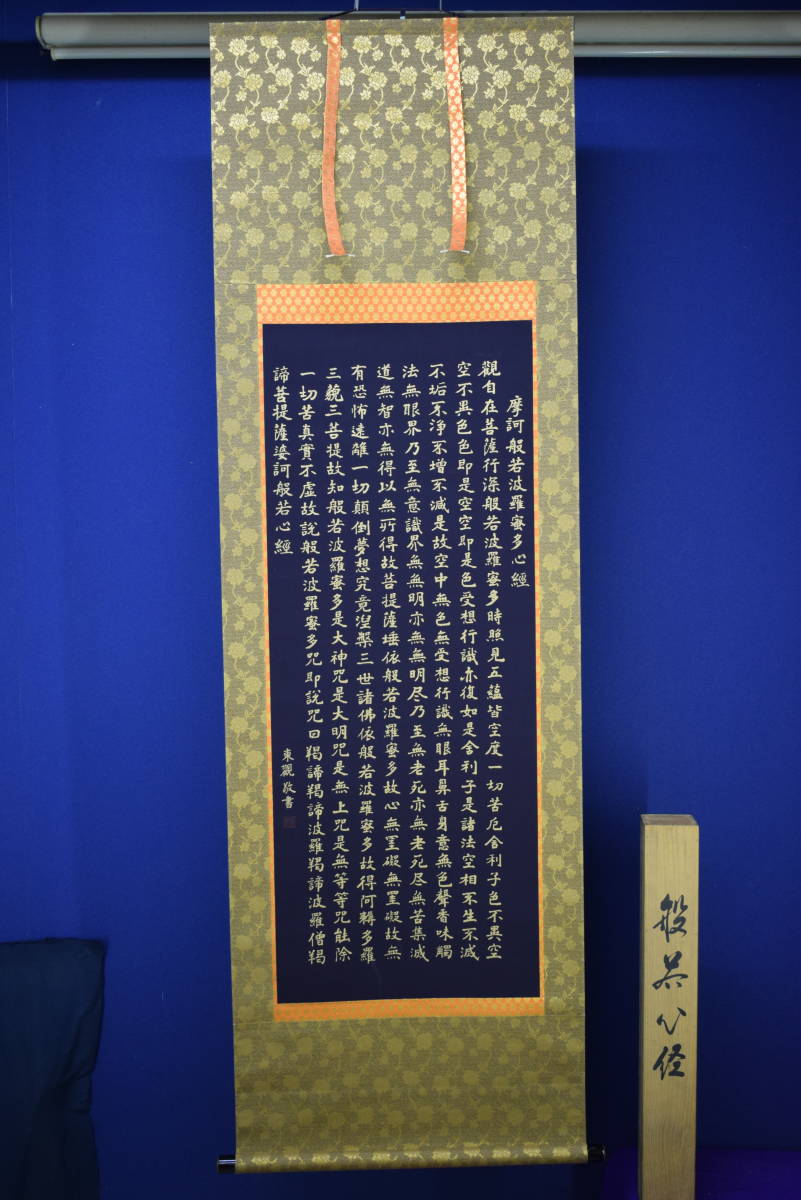 摩訶般若波羅蜜多心經
觀自在菩薩行深般若波羅蜜多時照見五蘊皆空度一切苦厄舍利子色不異空
空不異色色即是空空即是色受想行識亦復如是舍利子是諸法空相不生不滅
不垢不淨不增不減是故空中無色無受想行識無眼耳鼻舌身意無色聲香味觸
法無眼界乃至無意識界無無明亦無無明尽乃至無老死亦無老死尽無苦集滅
道無智亦無得以無所得故菩提薩埵依般若波羅蜜多故心無罣礙無罣礙故無
有恐怖遠離一切顛倒夢想究竟涅槃三世諸佛依般若波羅蜜多故得阿耨多羅
三藐三菩提故知般若波羅蜜多是大神咒是大明咒是無上咒是無等等咒能除
一切苦真實不虛故說般若波羅蜜多咒即說咒曰羯諦羯諦波羅羯諦波羅僧羯
諦菩提薩婆訶般若心經
東觀敬書
般若心経